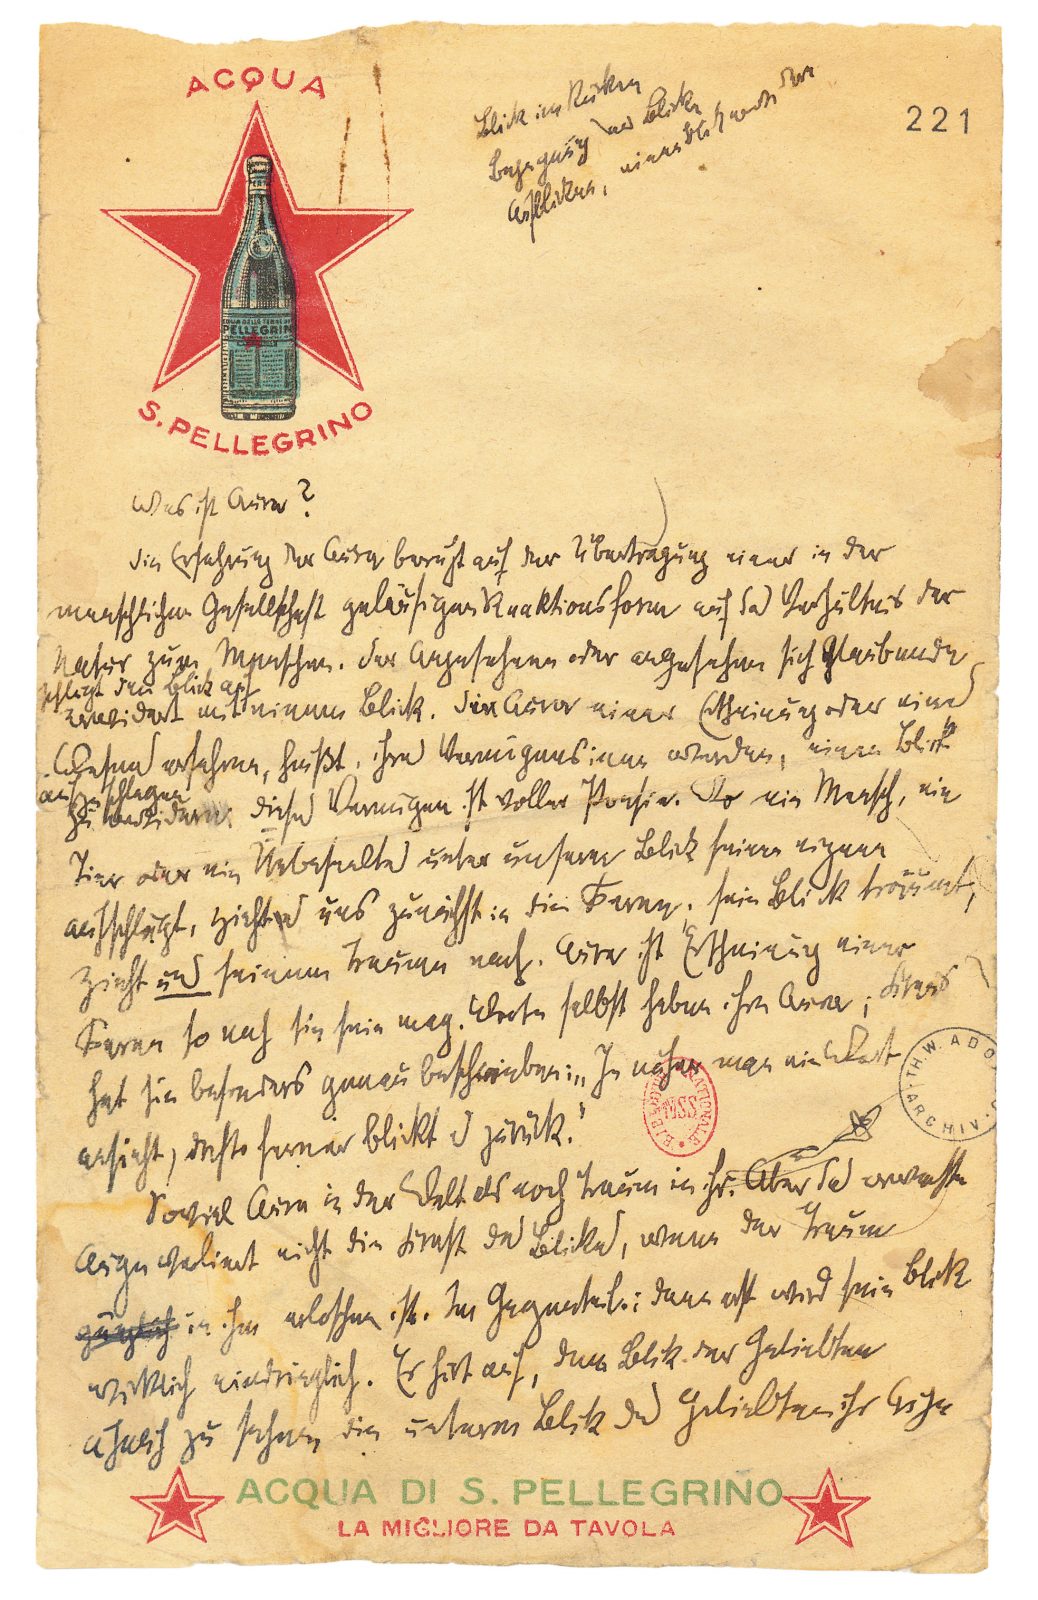 ACQUA
S. PELLEGRINO
PELLEGRINO
221
Blick im Rücken
Begegnung der Blicke
Aufblicken,
Was ist Aura?
Die Erfahrung der Aura beruht auf der Übertragung einer in der
menschlichen Gesellschaft geläufigen Reaktionsform auf das Verhältnis der
Natur zum Menschen. Der Angesehene oder angesehen sich Glaubende
schlägt den Blick auf
erwidert mit einem Blick. Die Aura einer Erscheinung oder eines
Wesens erfahren, heißt, ihres Vermögens inne werden, einen Blick
aufzuschlagen
zu erwidern. Dieses Vermögen ist voller Poesie. Wo ein Mensch, ein
Tier oder ein Unbeseeltes unter unserm Blick seinen eignen
aufschlägt, zieht es uns zunächst in die Ferne; sein Blick träumt,
zieht uns seinem Traume nach. Aura ist Erscheinung einer
Ferne so nah sie sein mag. Worte selbst haben ihre Aura; Kraus
hat sie besonders genau beschrieben: „Je näher man ein Wort
ansieht, desto ferner blickt es zurück."
Soviel Aura in der Welt als noch Traum in ihr. Aber das erwachte
Auge verliert nicht die Kraft des Blicks, wenn der Traum
gänzlich in ihm erloschen ist. Im Gegenteil: dann erst wird sein Blick
wirklich eindringlich. Er hört auf, dem Blick der Geliebten
ähnlich zu sehen die unterm Blick des Geliebten ihr Auge
BIBLIOTHÈQUE NATIONALE
MSS
TH. W. ADO
ARCHIV
ACQUA DI S. PELLEGRINO
LA MIGLIORE DA TAVOLA